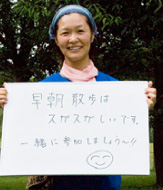 早朝散歩は
スガスガしいです。
一緒に参加しましょう〜!!